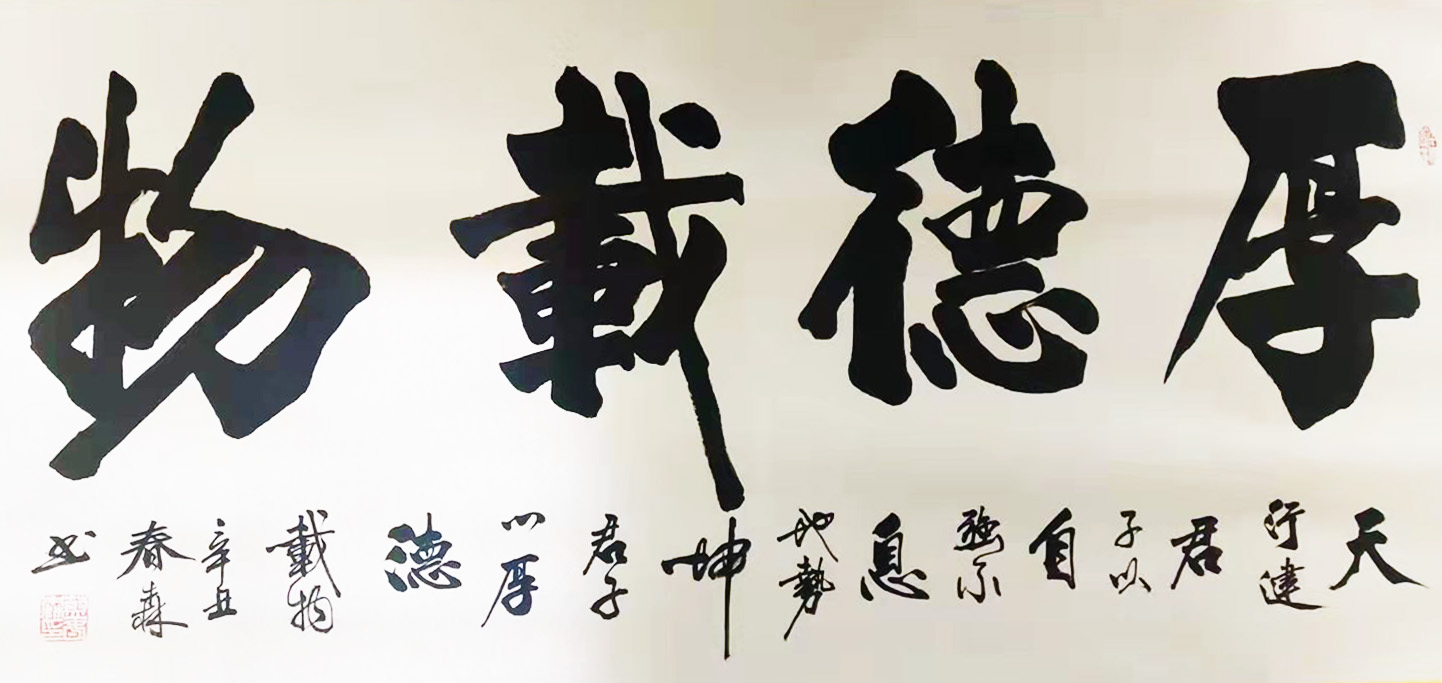 厚德載物
天行健君子以自強不息地勢坤君子以厚德載物辛丑春森书